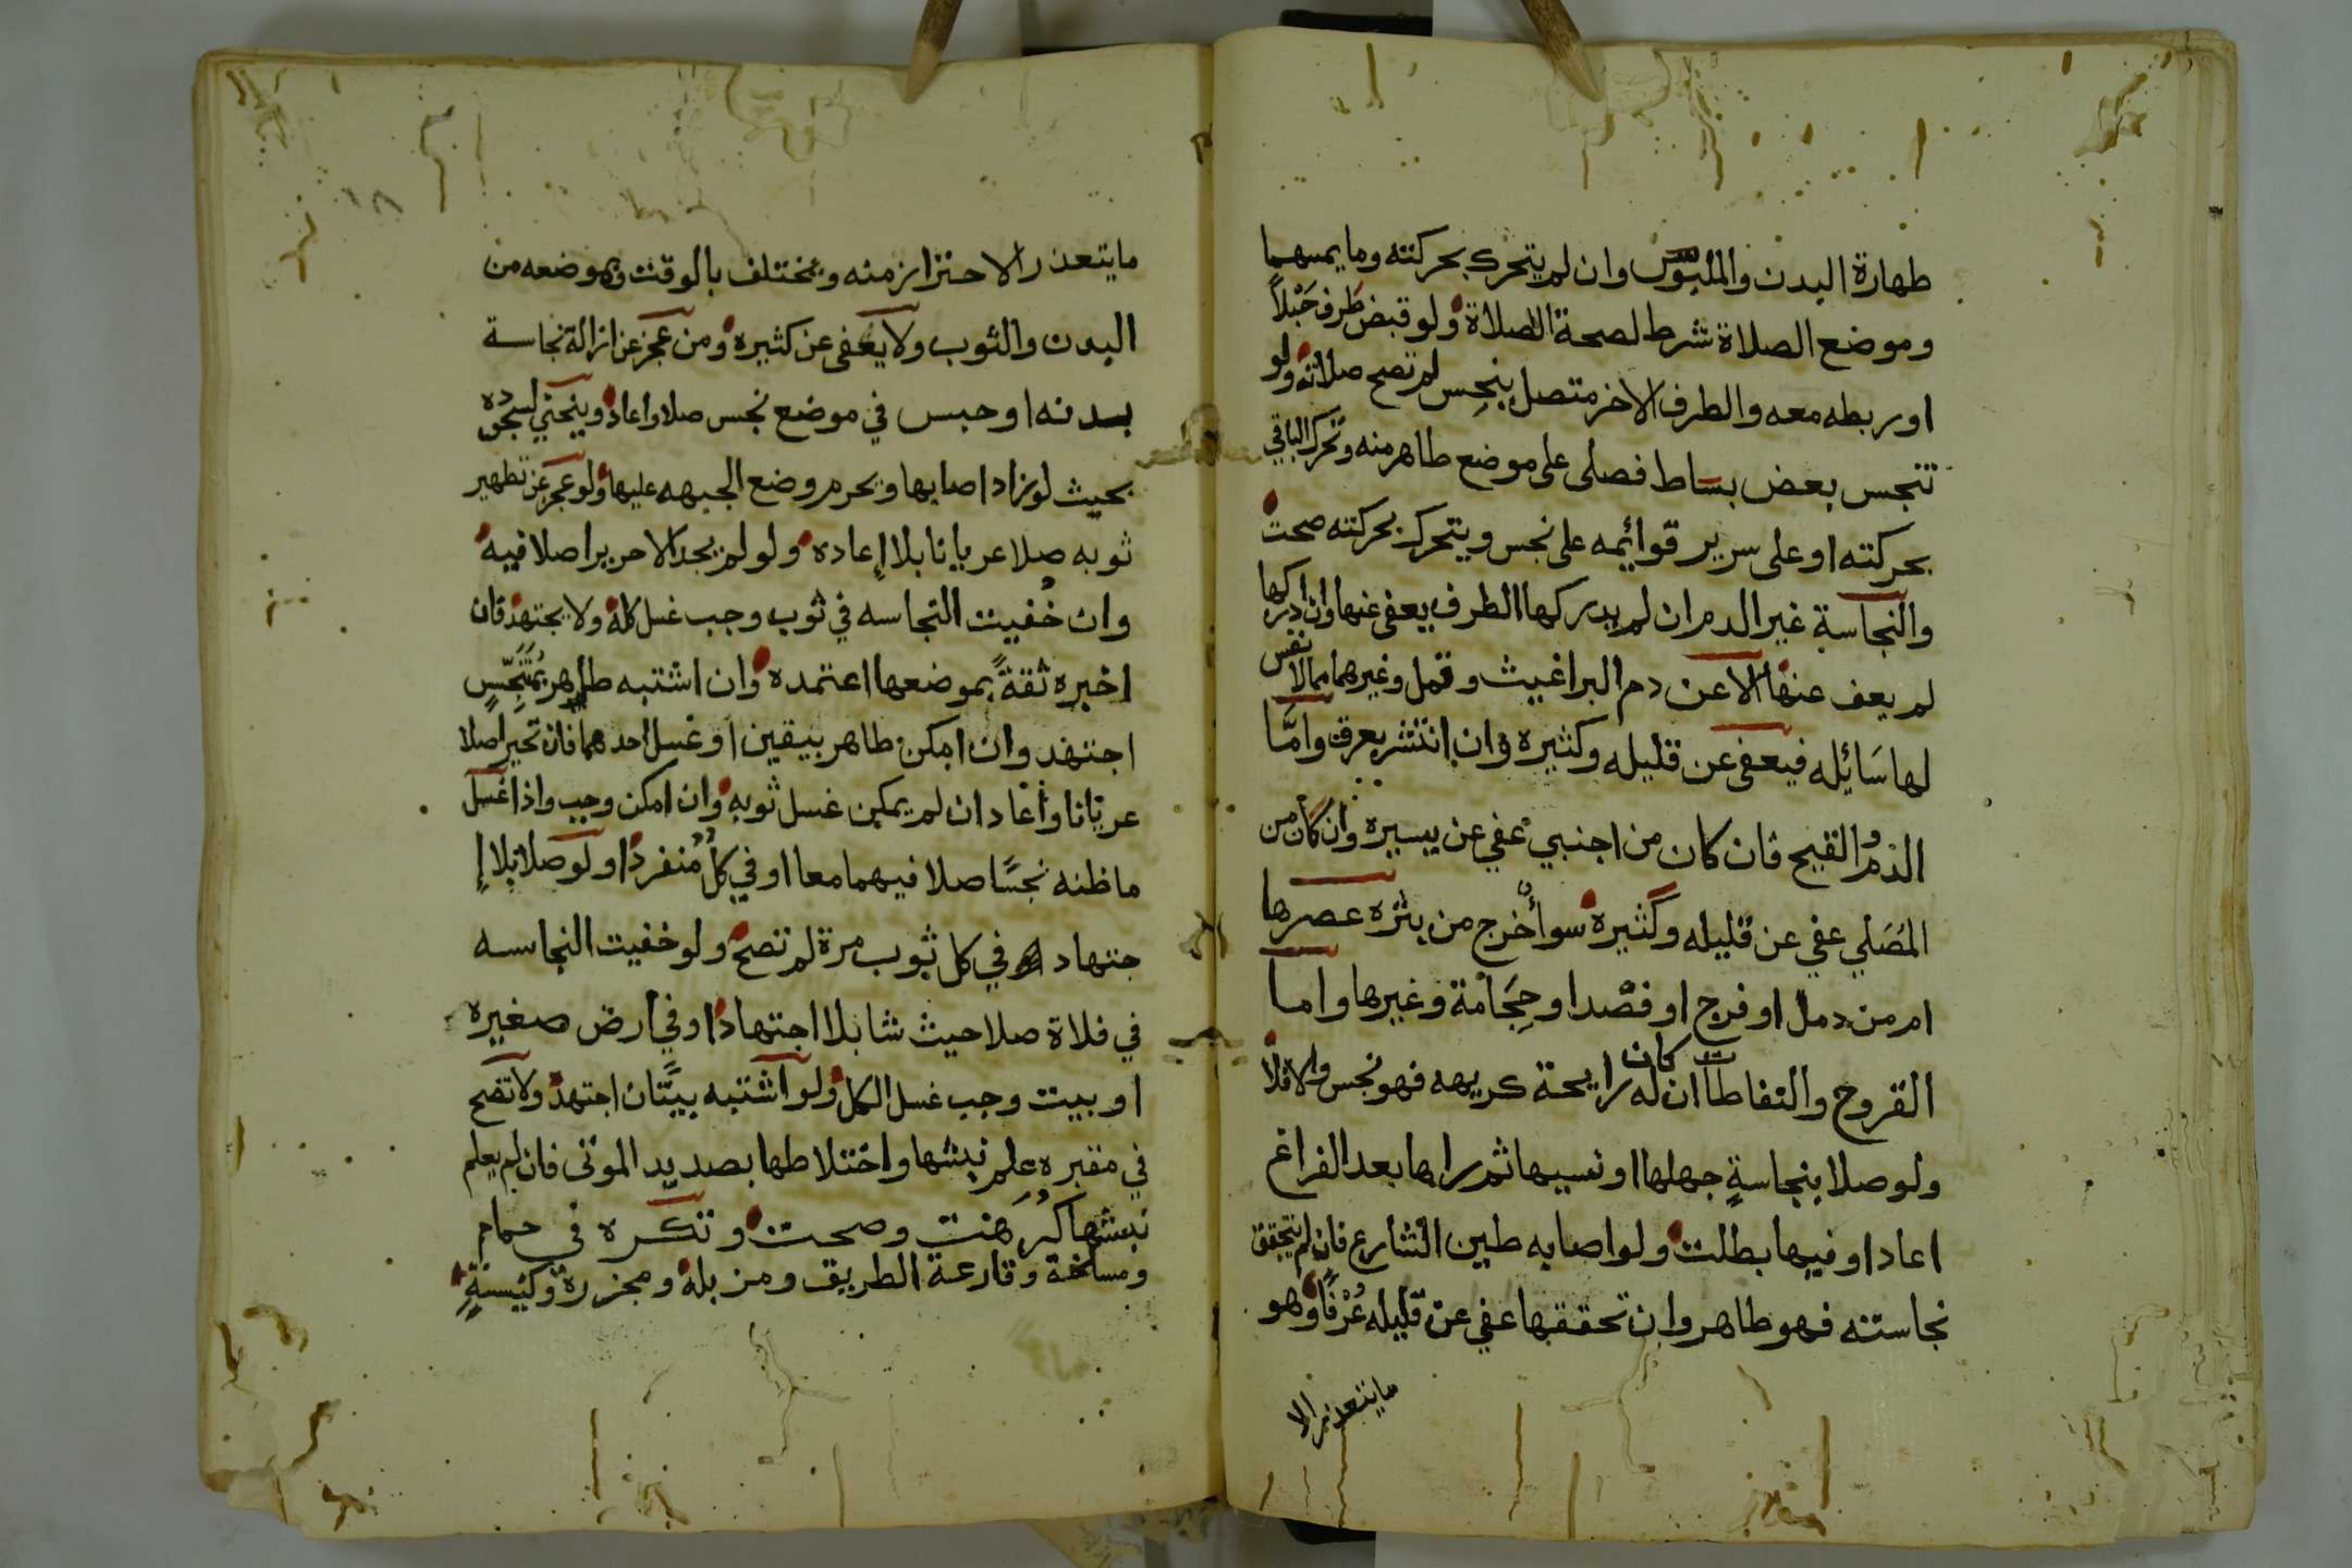 طهارة البدن والملبوس وان لم يتحرك بحركته وما يمسهما
وموضع الصلاة شرط لصحة الصلاة ولو قبض طرف حَبْلاً
او ربطه معه والطرف الاخر متصل بنجِس لم تصح صلاته ولو
تنجس بعض بساط فصلى على موضع طاهر منه وتحرك الباقي
بحركته او على سرير قوائمه على نجس ويتحرك بحركته صحت
والنجاسة غير الدم ان لم يدركها الطرف يعفى عنها وان ادركها
لم يعف عنها الا عن دم البراغيث وقمل وغيرهما مما لا نفس
لها سَائله فيعفى عن قليله وكثيره وان انتشر بعرق وامَّا
الدم والقيح فان كان من اجنبي عفي عن يسيره وان كان من
المُصَلي عفي عن قليله وكثيره سوا أخرج من بثره عصرها
ام من دمل او فرج او فصْدا وحِجَامة وغيرها واما
القروح والنفاطات ان كان له رايحة كريهه فهو نجس والا فلا
ولو صلا بنجاسةٍ جهلها او نسيها ثم راها بعد الفراغ
اعاد او فيها بطلت ولو اصابه طين الشارع فان لم يتحقق
نجاسته فهو طاهر وان تحققها عفي عن قليله عُرْفًا وهو
ما يتعذر الا
١٨
ما يتعذر الاحتراز منه ويختلف بالوقت وبموضعه من
البدن والثوب ولا يعفى عن كثيره ومن عجز عن ازالة نجاسة
بدنه او حبس في موضع نجس صلا واعاد وينحني لسجوده
بحيث لو زاد اصابها ويحرم وضع الجبهه عليها ولو عجز عن تطهير
ثوبه صلا عريانا بلا إعاده ولو لم يجد الا حريرا صلا فيه
وان خُفيت النجاسه في ثوب وجب غسل كله ولا يجتهد فان
اخبره ثقةً بموضعها اعتمده وان اشتبه طاهر بمُتَنَجِّسٍ
اجتهد وان امكن طاهر بيقين او غسل احدهما فان تحير صلا
عريانا وأعاد ان لم يمكن غسل ثوبه وان امكن وجب واذا غسل
ما ظنه نجسًا صلا فيهما معا او في كل منفردا ولو صلا بلا إ
جتهاد في كل ثوب مرة لم تصح ولو خفيت النجاسه
في فلاة صلا حيث شا بلا اجتهاد او في ارض صغيره
او بيت وجب غسل الكل ولو اشتبه بيتَّان اجتهد ولا تصح
في مقبره علم نبشها واختلاطها بصديد الموتى فان لم يعلم
نبشها كُرِهَت وصحت وتكره في حمام
ومسلخة وقارعة الطريق ومزبلة ومجزرة وكنيسةٍ